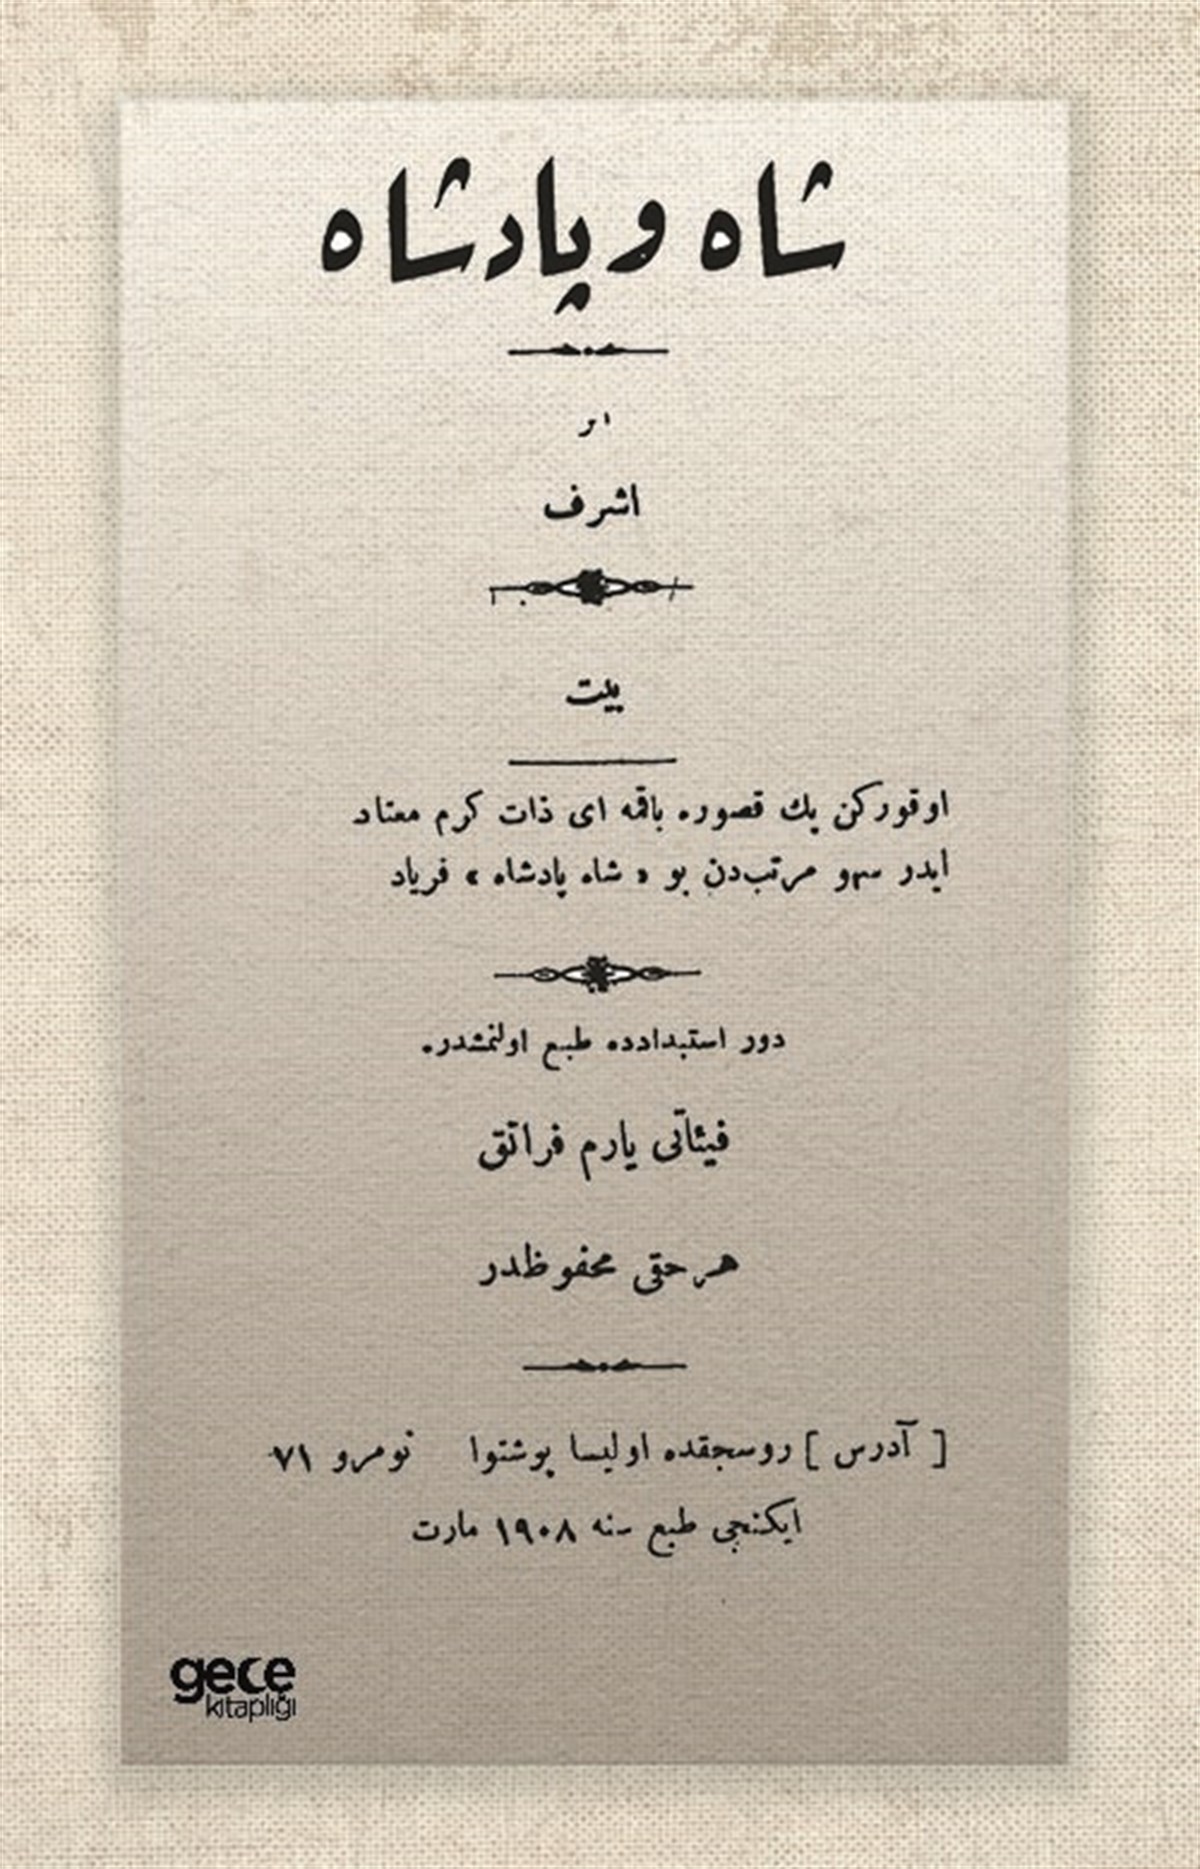 شاه و پادشاه
اشرف
بيت
اوقوركن پك قصوره باقمه ای ذات كرم معتاد
ايدر سهو مرتب‌دن بو « شاه پادشاه » فرياد
دور استبدادده طبع اولنمشدر.
فيئاتی يارم فرانق
هر حقی محفوظدر
[ آدرس ] روسجقده اوليسا پوشتوا نومرو ٧١
ايكنجی طبع سنه ١٩٠٨ مارت
gece
kitaplığı